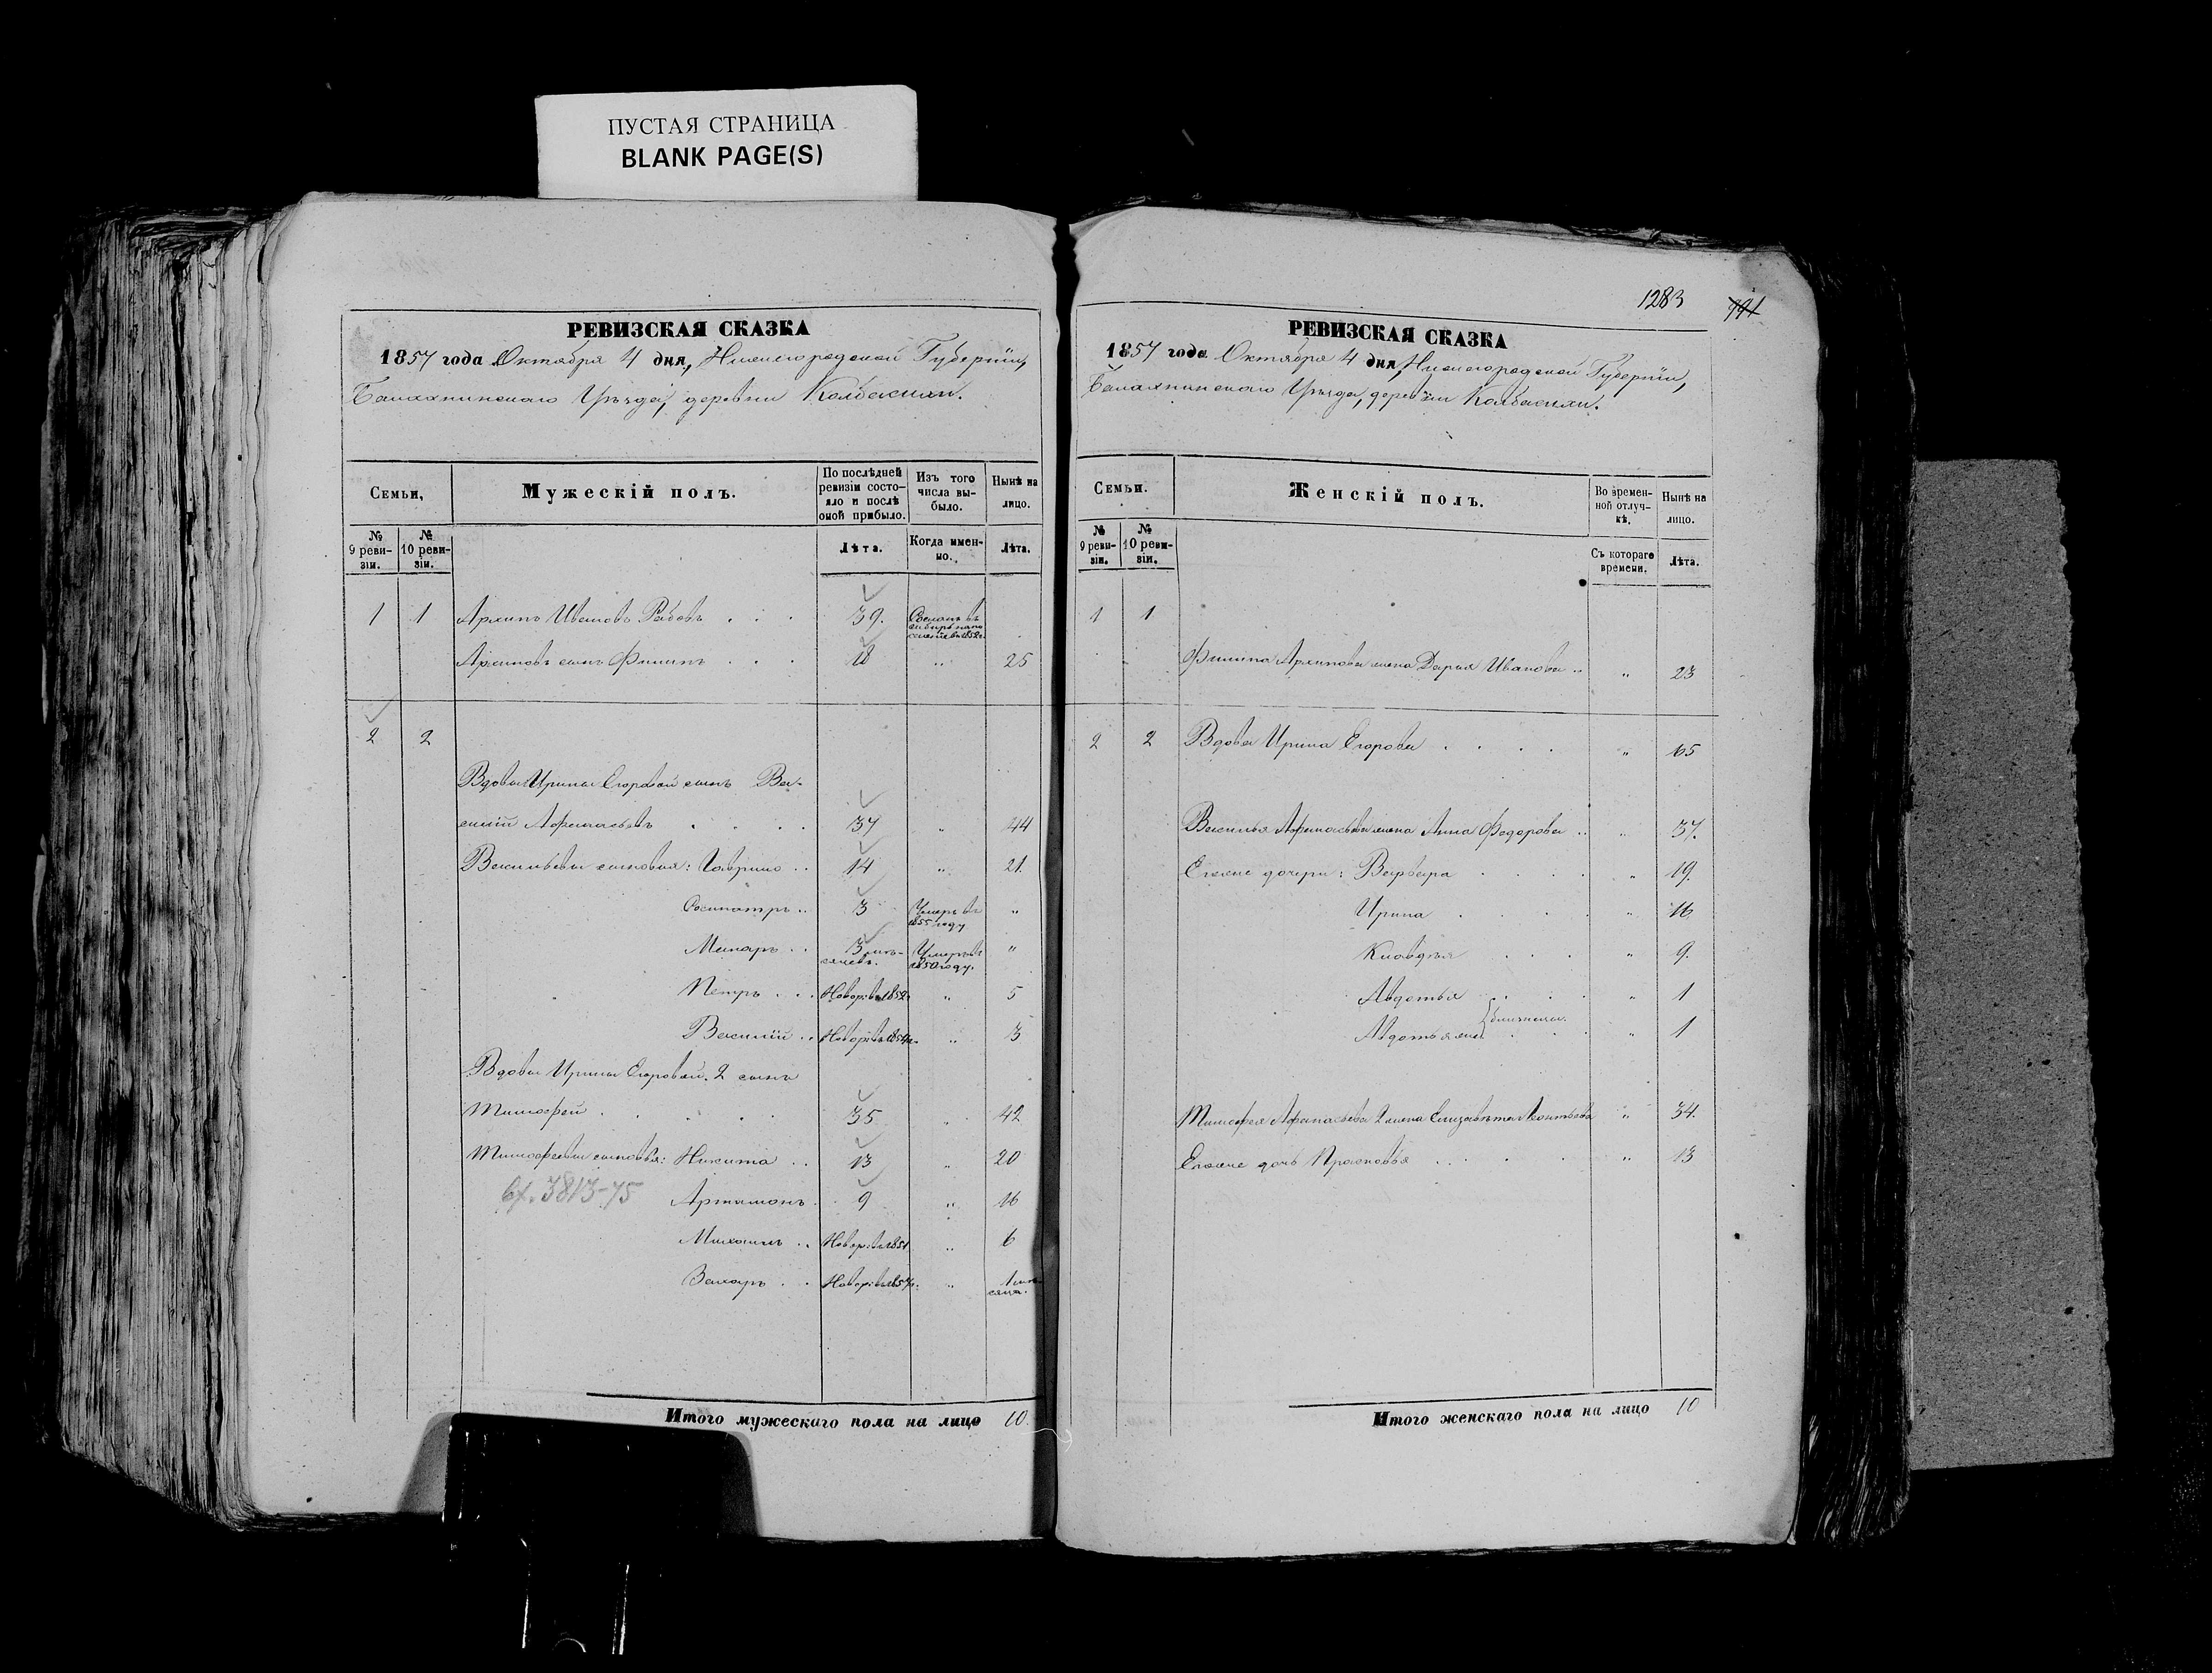 ПУСТАЯ СТРАНИЦА
BLANK PAGE(S)
РЕВИЗСКАЯ СКАЗКА
1857 года Октября 4 дня, Нижегородской Губерніи,
Балахнинскаго Уѣзда, деревни
Семьи,
Мужескій полъ.
По послѣдней ревизіи состояло и послѣ оной прибыло.
Изъ того числа выбыло.
Нынѣ на лицо.
№ 9 ревизіи.
№ 10 ревизіи.
Лѣта.
Когда именно.
Лѣта.
1 1 Архипъ Ивановъ Рябовъ . . . 39.
Архиповъ сынъ Филипъ . . . 18 " 25
2 2
Вдовы Ирины Егоровой сынъ Ва-
силій Афанасьевъ . . . . 37 " 44
Васильевы сыновья: Гаврило . . 14 " 21.
Сосипатръ . . 3 Умеръ въ 1855 году "
Макаръ . . 3 мѣсяцевъ. Умеръ въ 1850 году. "
Петръ . . . Новорж въ 1852 " 5
Василій . . Новорж въ 1854 " 3
Вдовы Ирины Егоровой 2 сынъ
Тимофей . . . . . 35 " 42
Тимофеевы сыновья: Никита . . 13 " 20
3813-75 Артамонъ . 9 " 16
Михаилъ . . Новорж въ 1851 " 6
Захаръ . . Новорж въ 1857 " 1 мѣсяца.
Итого мужескаго пола на лицо 10.
1283
991
РЕВИЗСКАЯ СКАЗКА
1857 года Октября 4 дня, Нижегородской Губерніи,
Балахнинскаго Уѣзда, деревни
Семьи.
Женскій полъ.
Во временной отлучкѣ.
Нынѣ на лицо.
№ 9 ревизіи.
№ 10 ревизіи.
Съ котораго времени.
Лѣта.
1 1
Филипа Архипова жена Дарья Иванова .. " 23
2 2 Вдова Ирина Егорова . . . . " 65
Василья Афанасьева жена Анна Федорова .. " 37.
Ихъ же дочери: Варвара . . . . " 19.
Ирина . . . . " 16
Клавдѣя . . . " 9.
Авдотья . . . " 1
близнецы.
Авдотья же . . " 1
Тимофея Афанасьева 2 жена Елизавѣта Леонтьева " 34.
Ихъ же дочь Прасковья . . . . " 13
Итого женскаго пола на лицо 10